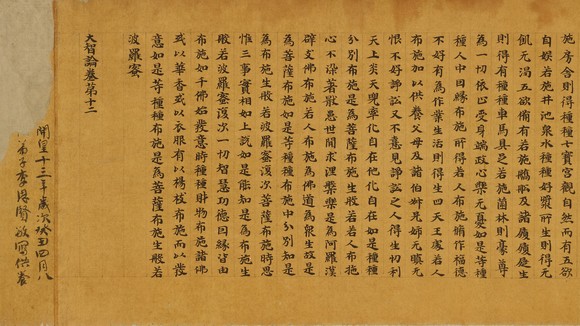 施房舍則得種種七寶宮觀自然而有五欲
自娛若施井池泉水種種好漿所生則得无
飢无渴五欲備有若施橋船及諸履屣生
則得有種種車馬具足若施薗林則豪尊
為一切依止受身端政心樂无憂如是等種
種人中因緣布施所得若人布施脩作福德
不好有為作業生活則得生四天王處若人
布施加以供養父母及諸伯叔兄姊无瞋无
恨不好諍訟又不憙見諍訟之人得生忉利
天上炎天兜率化自在他化自在如是種種
分別布施是為菩薩布施生般若若人布施
心不染著厭患世間求涅槃樂是為阿羅漢
辟支佛布施若人布施為佛道為衆生故是
為菩薩布施如是等種種布施中分別知是
為布施生般若波羅蜜復次菩薩布施時思
惟三事實相如上說如是能知是為布施生
般若波羅蜜復次一切智慧功德因緣皆由
布施如千佛始發意時種種財物布施諸佛
或以華香或以衣服有以楊枝布施而以發
意如是等種種布施是為菩薩布施生般若
波羅蜜
大智論卷第十二
開皇十三年歲次癸丑四月八
弟子李思賢敬寫供養